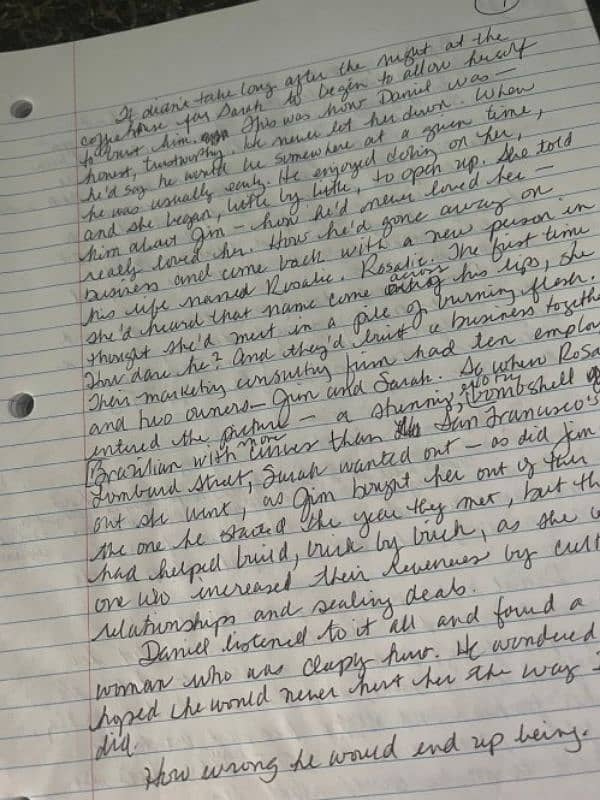 1
It didn't take long after the night at the
coffeehouse for Sarah to begin to allow herself
to trust him. This was how Daniel was —
honest, trustworthy. He never let her down. When
he'd say he would be somewhere at a given time,
he was usually early. He enjoyed doting on her,
and she began, little by little, to open up. She told
him about Jim — how he'd never loved her —
really loved her. How he'd gone away on
business and come back with a new person in
his life named Rosalie. Rosalie. The first time
she'd heard that name come across his lips, she
thought she'd melt in a pile of burning flesh.
How dare he? And they'd built a business together
Their marketing consulting firm had ten employ
and two owners — Jim and Sarah. So when Rosa
entered the picture — a stunning, bombshell of
Brazilian with more curves than San Francisco's
Lombard Street, Sarah wanted out — as did Jim
out she went, as Jim bought her out of their
the one he started the year they met, but th
had helped build, brick by brick, as she w
one who increased their revenues by cult
relationships and sealing deals.
Daniel listened to it all and found a
woman who was deeply hurt. He wondered
hoped he would never hurt her the way J
did.
How wrong he would end up being.